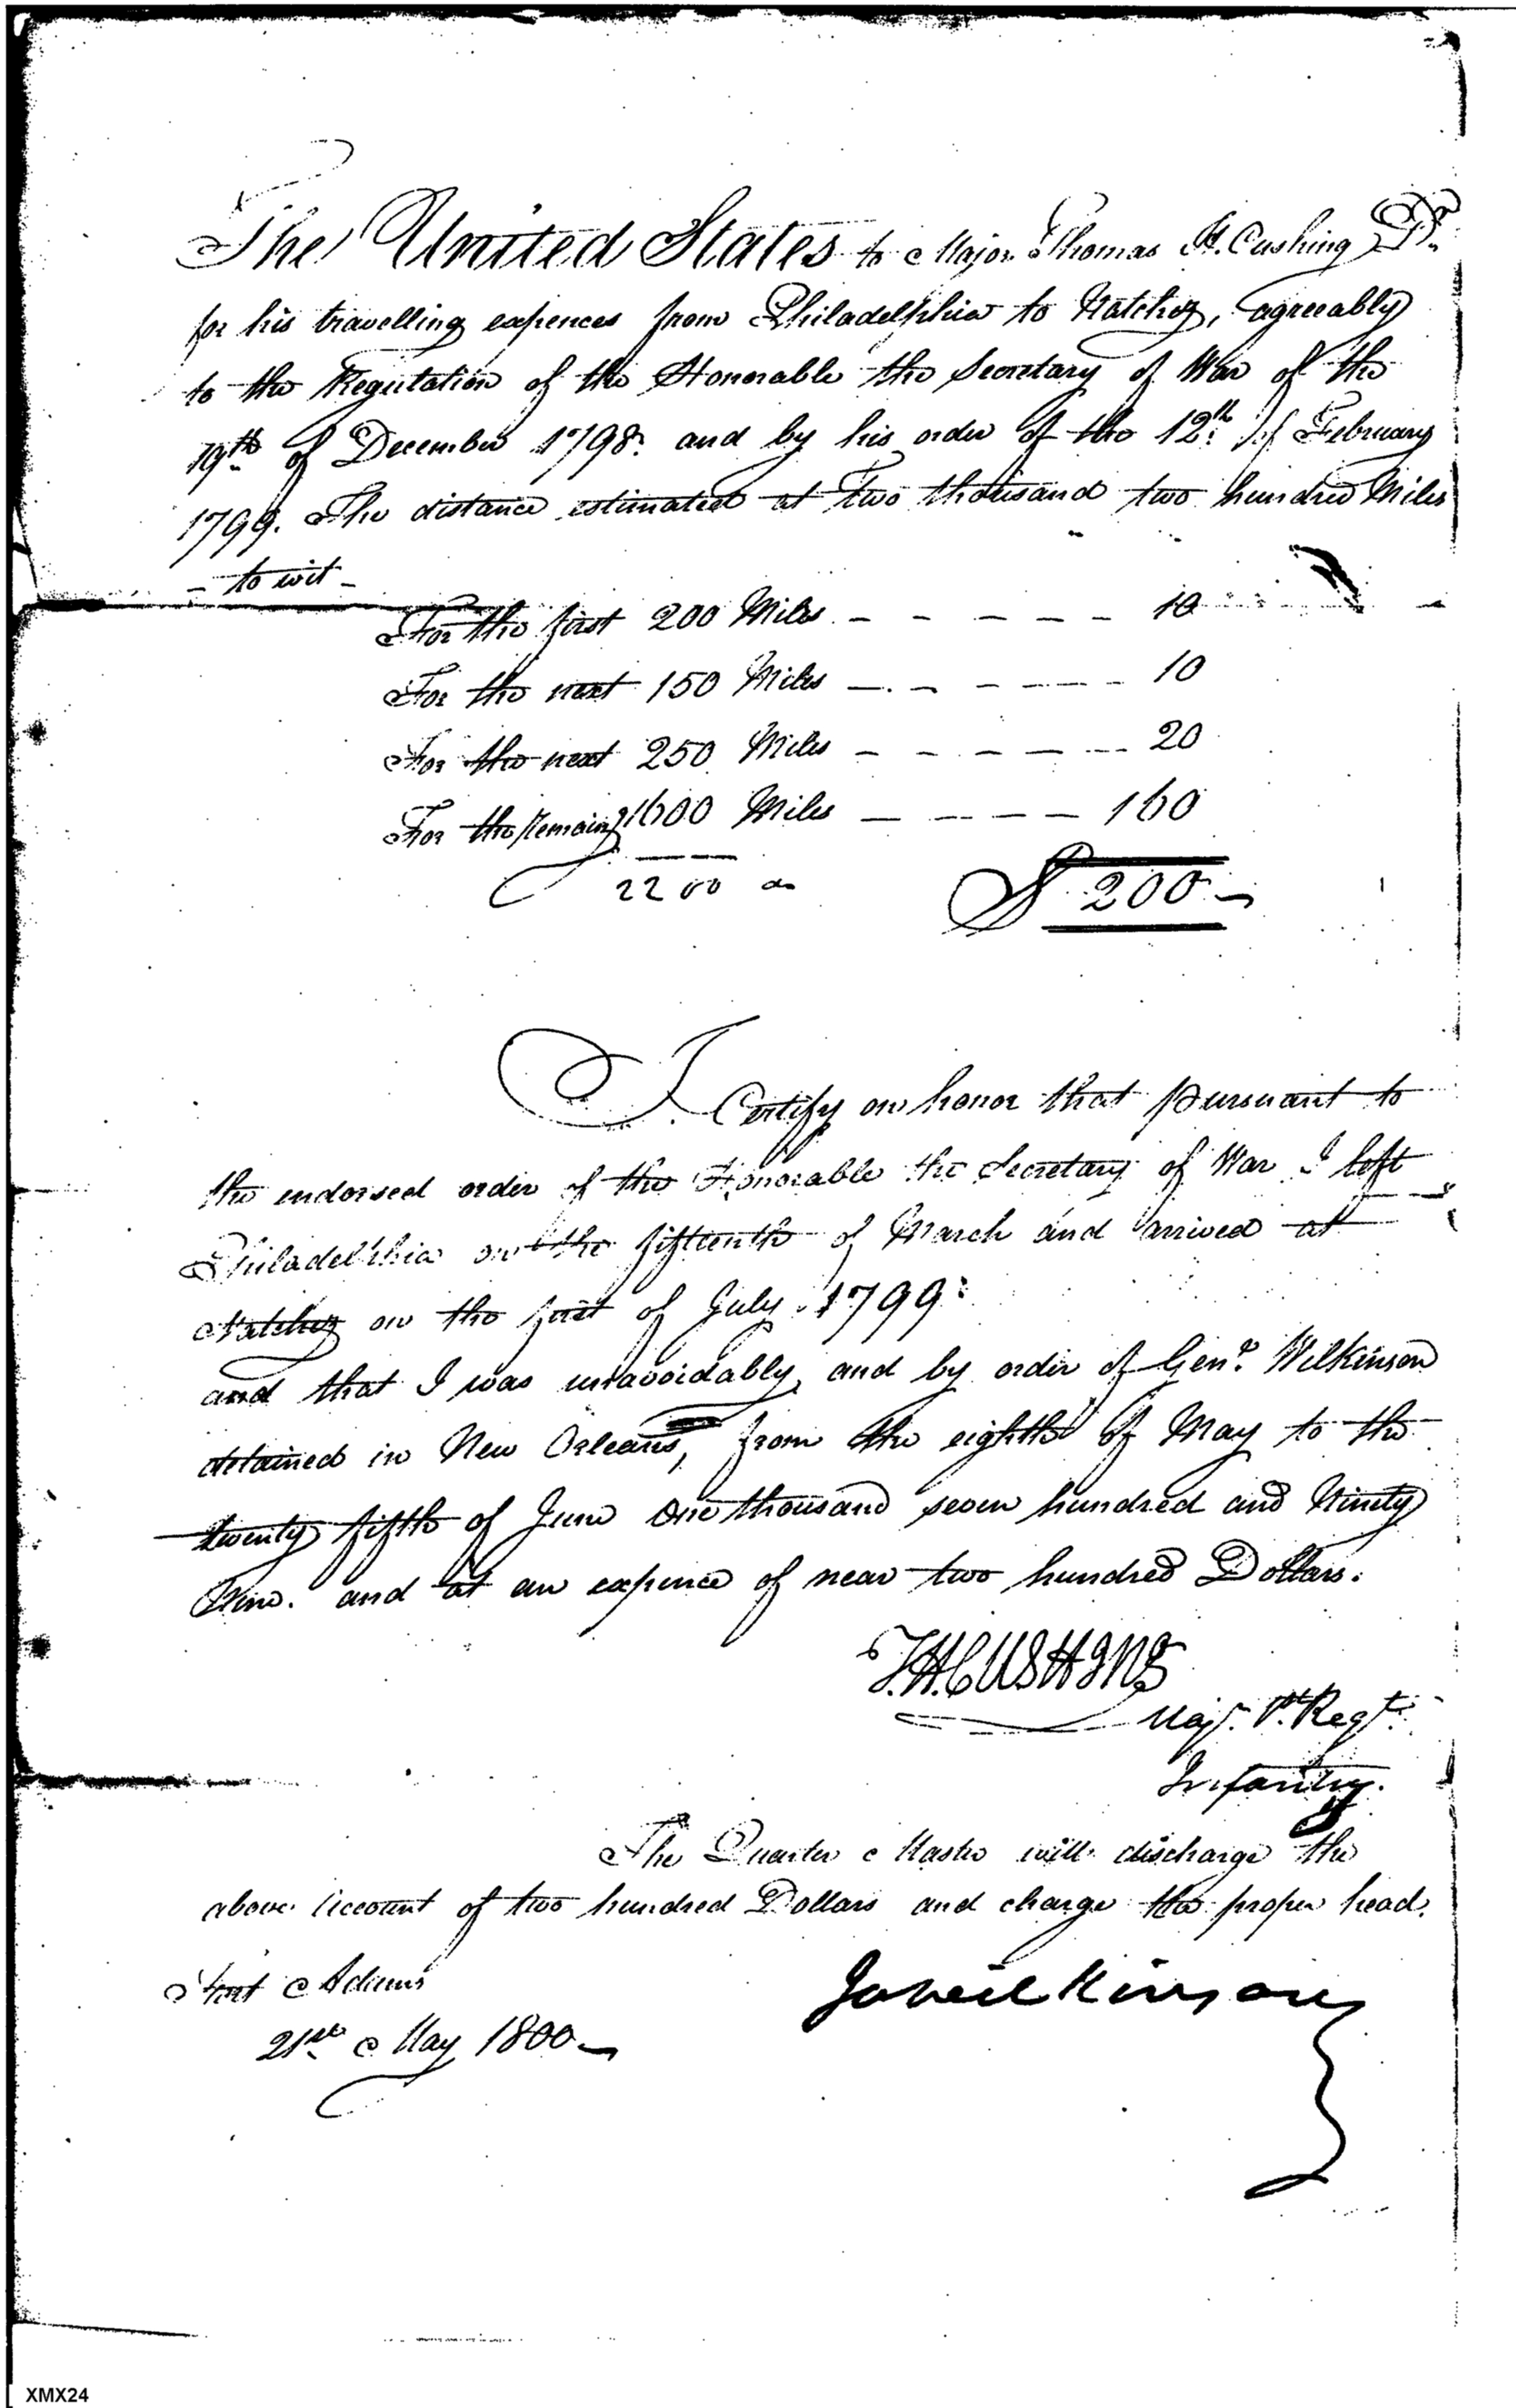 The United States to Major Thomas H. Cushing Dr.
for his travelling expences from Philadelphia to Natchez, agreeably
to the Regulation of the Honorable the Secretary of War of the
19th of December 1798. and by his order of the 12th of February
1799. The distance estimated at Two thousand two hundred Miles
- to wit -
For the first 200 Miles - - - - - 10
For the next 150 Miles - - - - - 10
For the next 250 Miles - - - - - 20
For the remaing 1600 Miles - - - - 160
2200 do $ 200 -
I Certify on honor that pursuant to
the endorsed order of the Honorable the Secretary of War I left
Philadelphia on the fifteenth of March and arrived at
Natchez on the first of July 1799:
and that I was unavoidably, and by order of Genl. Wilkinson
detained in New Orleans, from the eighth of May to the
twenty fifth of June One thousand seven hundred and Ninety
Nine. and at an expence of near two hundred Dollars.
T.H.CUSHING
Majr. 1st. Regt.
Infantry.
The Quarter Master will discharge the
above Account of two hundred Dollars and charge the proper head.
Fort Adams
Ja Wilkinson
21st May 1800 -
XMX24